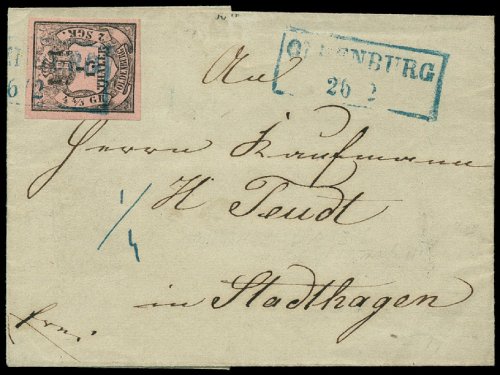 2 SGR.
4⅘ GR.
OLDENBURG
26 2
An
Herrn Kaufmann
H Teudt
1/4
in Stadthagen
frei